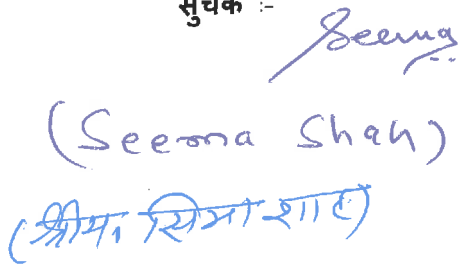 सुचक :-
Seema
(Seema Shah)
(श्रीमा. सिमा शाह)